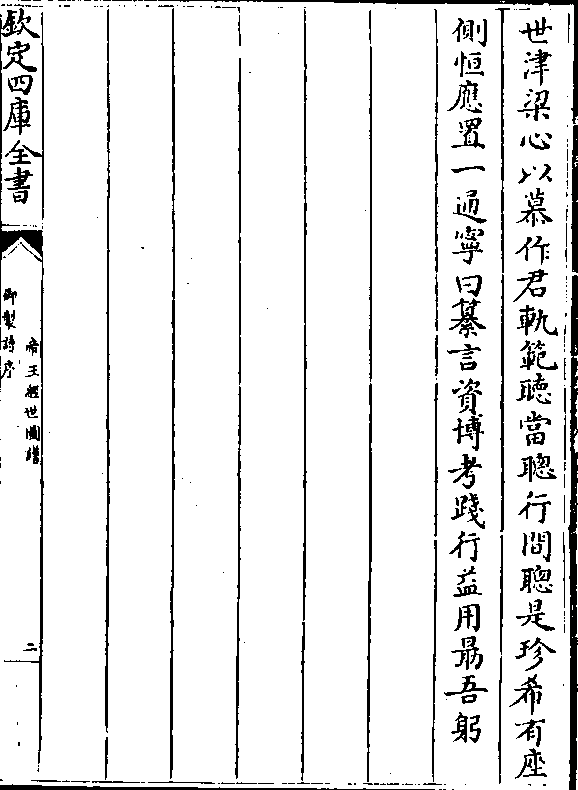 世津梁心以慕作君軌範聴當聰行間聰是珍希有座
側恒應置一通寧曰纂言資博考踐行益用勗吾躬
欽定四庫全書
帝王經世圖譜
御製詩序
二